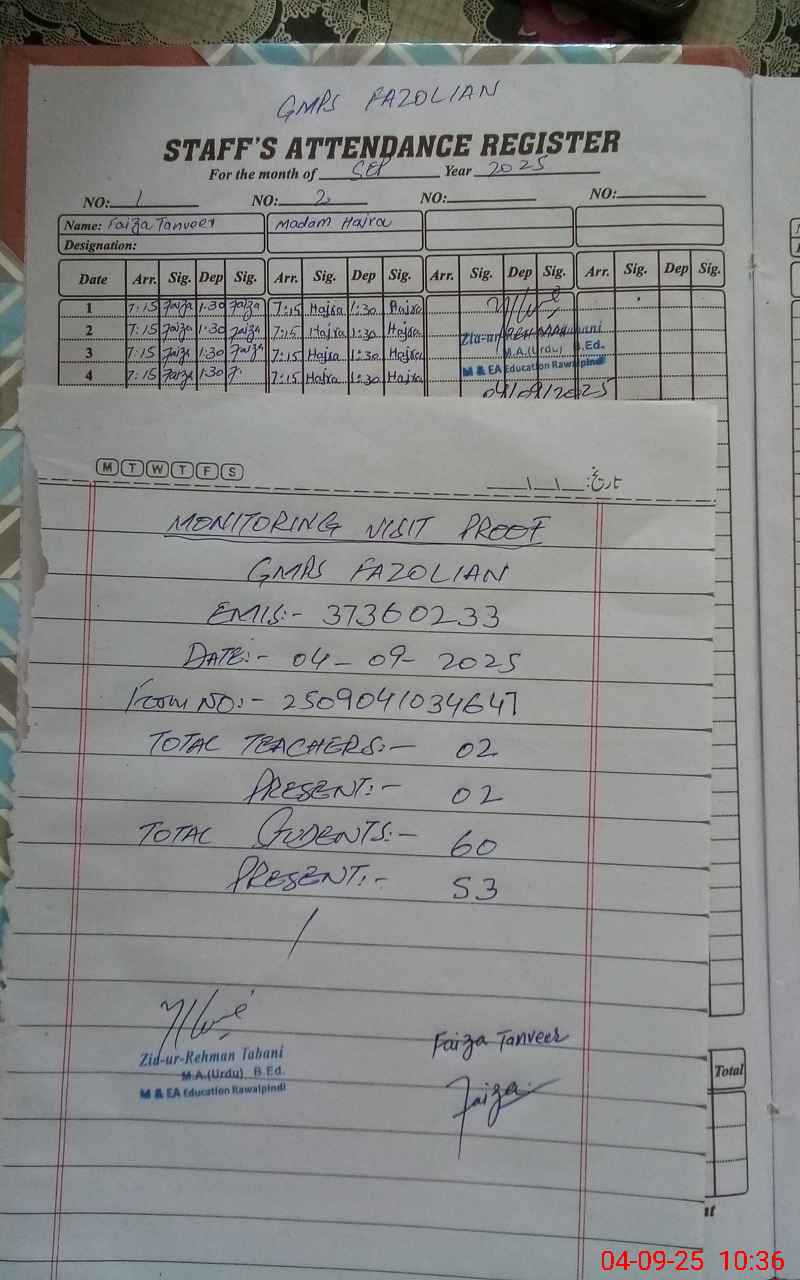 GMPS FAZOLIAN
STAFF'S ATTENDANCE REGISTER
For the month of SEP Year 2025
NO: 1 NO: 2 NO: NO:
Name: Faiza Tanveer Madam Hajra
Designation:
Date Arr. Sig. Dep Sig. Arr. Sig. Dep Sig. Arr. Sig. Dep Sig. Arr. Sig. Dep Sig.
1 7:15 Faiza 1:30 Faiza 7:15 Hajra 1:30 Hajra
2 7:15 Faiza 1:30 Faiza 7:15 Hajra 1:30 Hajra
3 7:15 Faiza 1:30 Faiza 7:15 Hajra 1:30 Hajra
4 7:15 Faiza 1:30 F. 7:15 Hajra 1:30 Hajra
M.A.(Urdu) B.Ed.
M & EA Education Rawalpindi
04/09/2025
M T W T F S
تاریخ:
MONITORING VISIT PROOF
GMPS FAZOLIAN
EMIS:- 37360233
DATE:- 04-09-2025
Form NO:- 2509041034647
TOTAL TEACHERS:- 02
PRESENT:- 02
TOTAL STUDENTS:- 60
PRESENT:- 53
Zia-ur-Rehman Tabani
M.A.(Urdu) B.Ed.
M & EA Education Rawalpindi
Faiza Tanveer
Faiza
Total
04-09-25 10:36